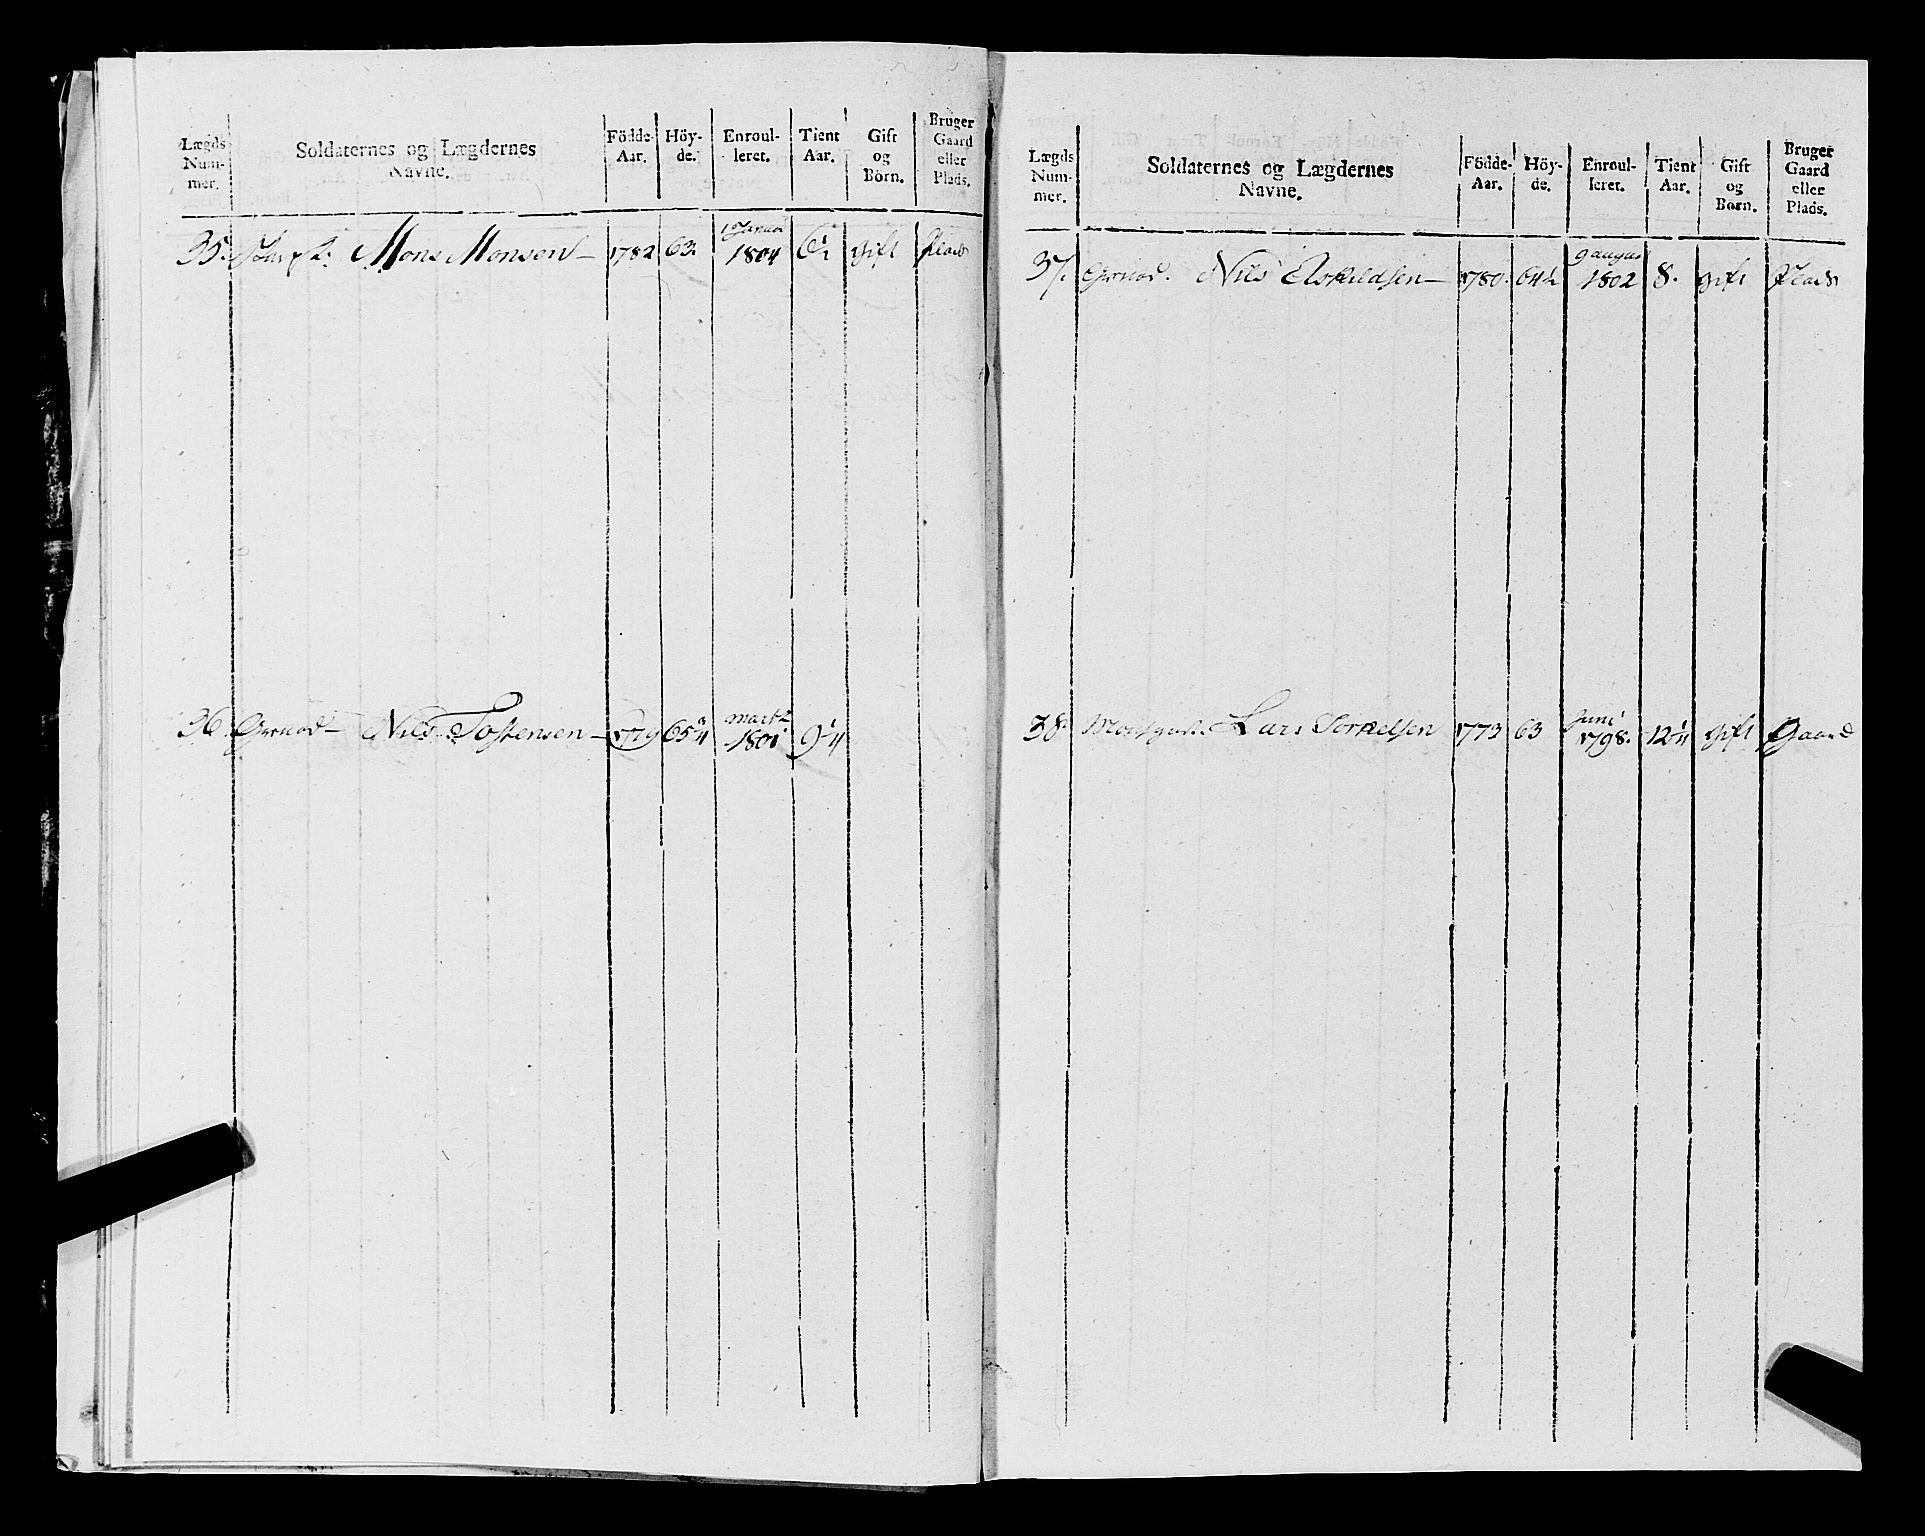 Lægds Num- mer.
Soldaternes og Lægdernes Navne.
Födde- Aar.
Höy- de.
Enroul- leret.
Tient Aar.
Gift og Börn.
Bruger Gaard eller Plads.
35. Skarpsk: Mons Monsen 1782 63. 1 Januar 1804 6½ gift Plads
36. Grenad Nils Tostensen 1779 65¾ mart 1801 9¼
Lægds Num- mer.
Soldaternes og Lægdernes Navne.
Födde- Aar.
Höy- de.
Enroul- leret.
Tient Aar.
Gift og Börn.
Bruger Gaard eller Plads.
37. Grenad. Nils Askildsen 1780 64½ 9 august 1802 8. gift Plads
38. Lars Terkelsen 1773 63 Juni 1798. 12¼ gift Gaard